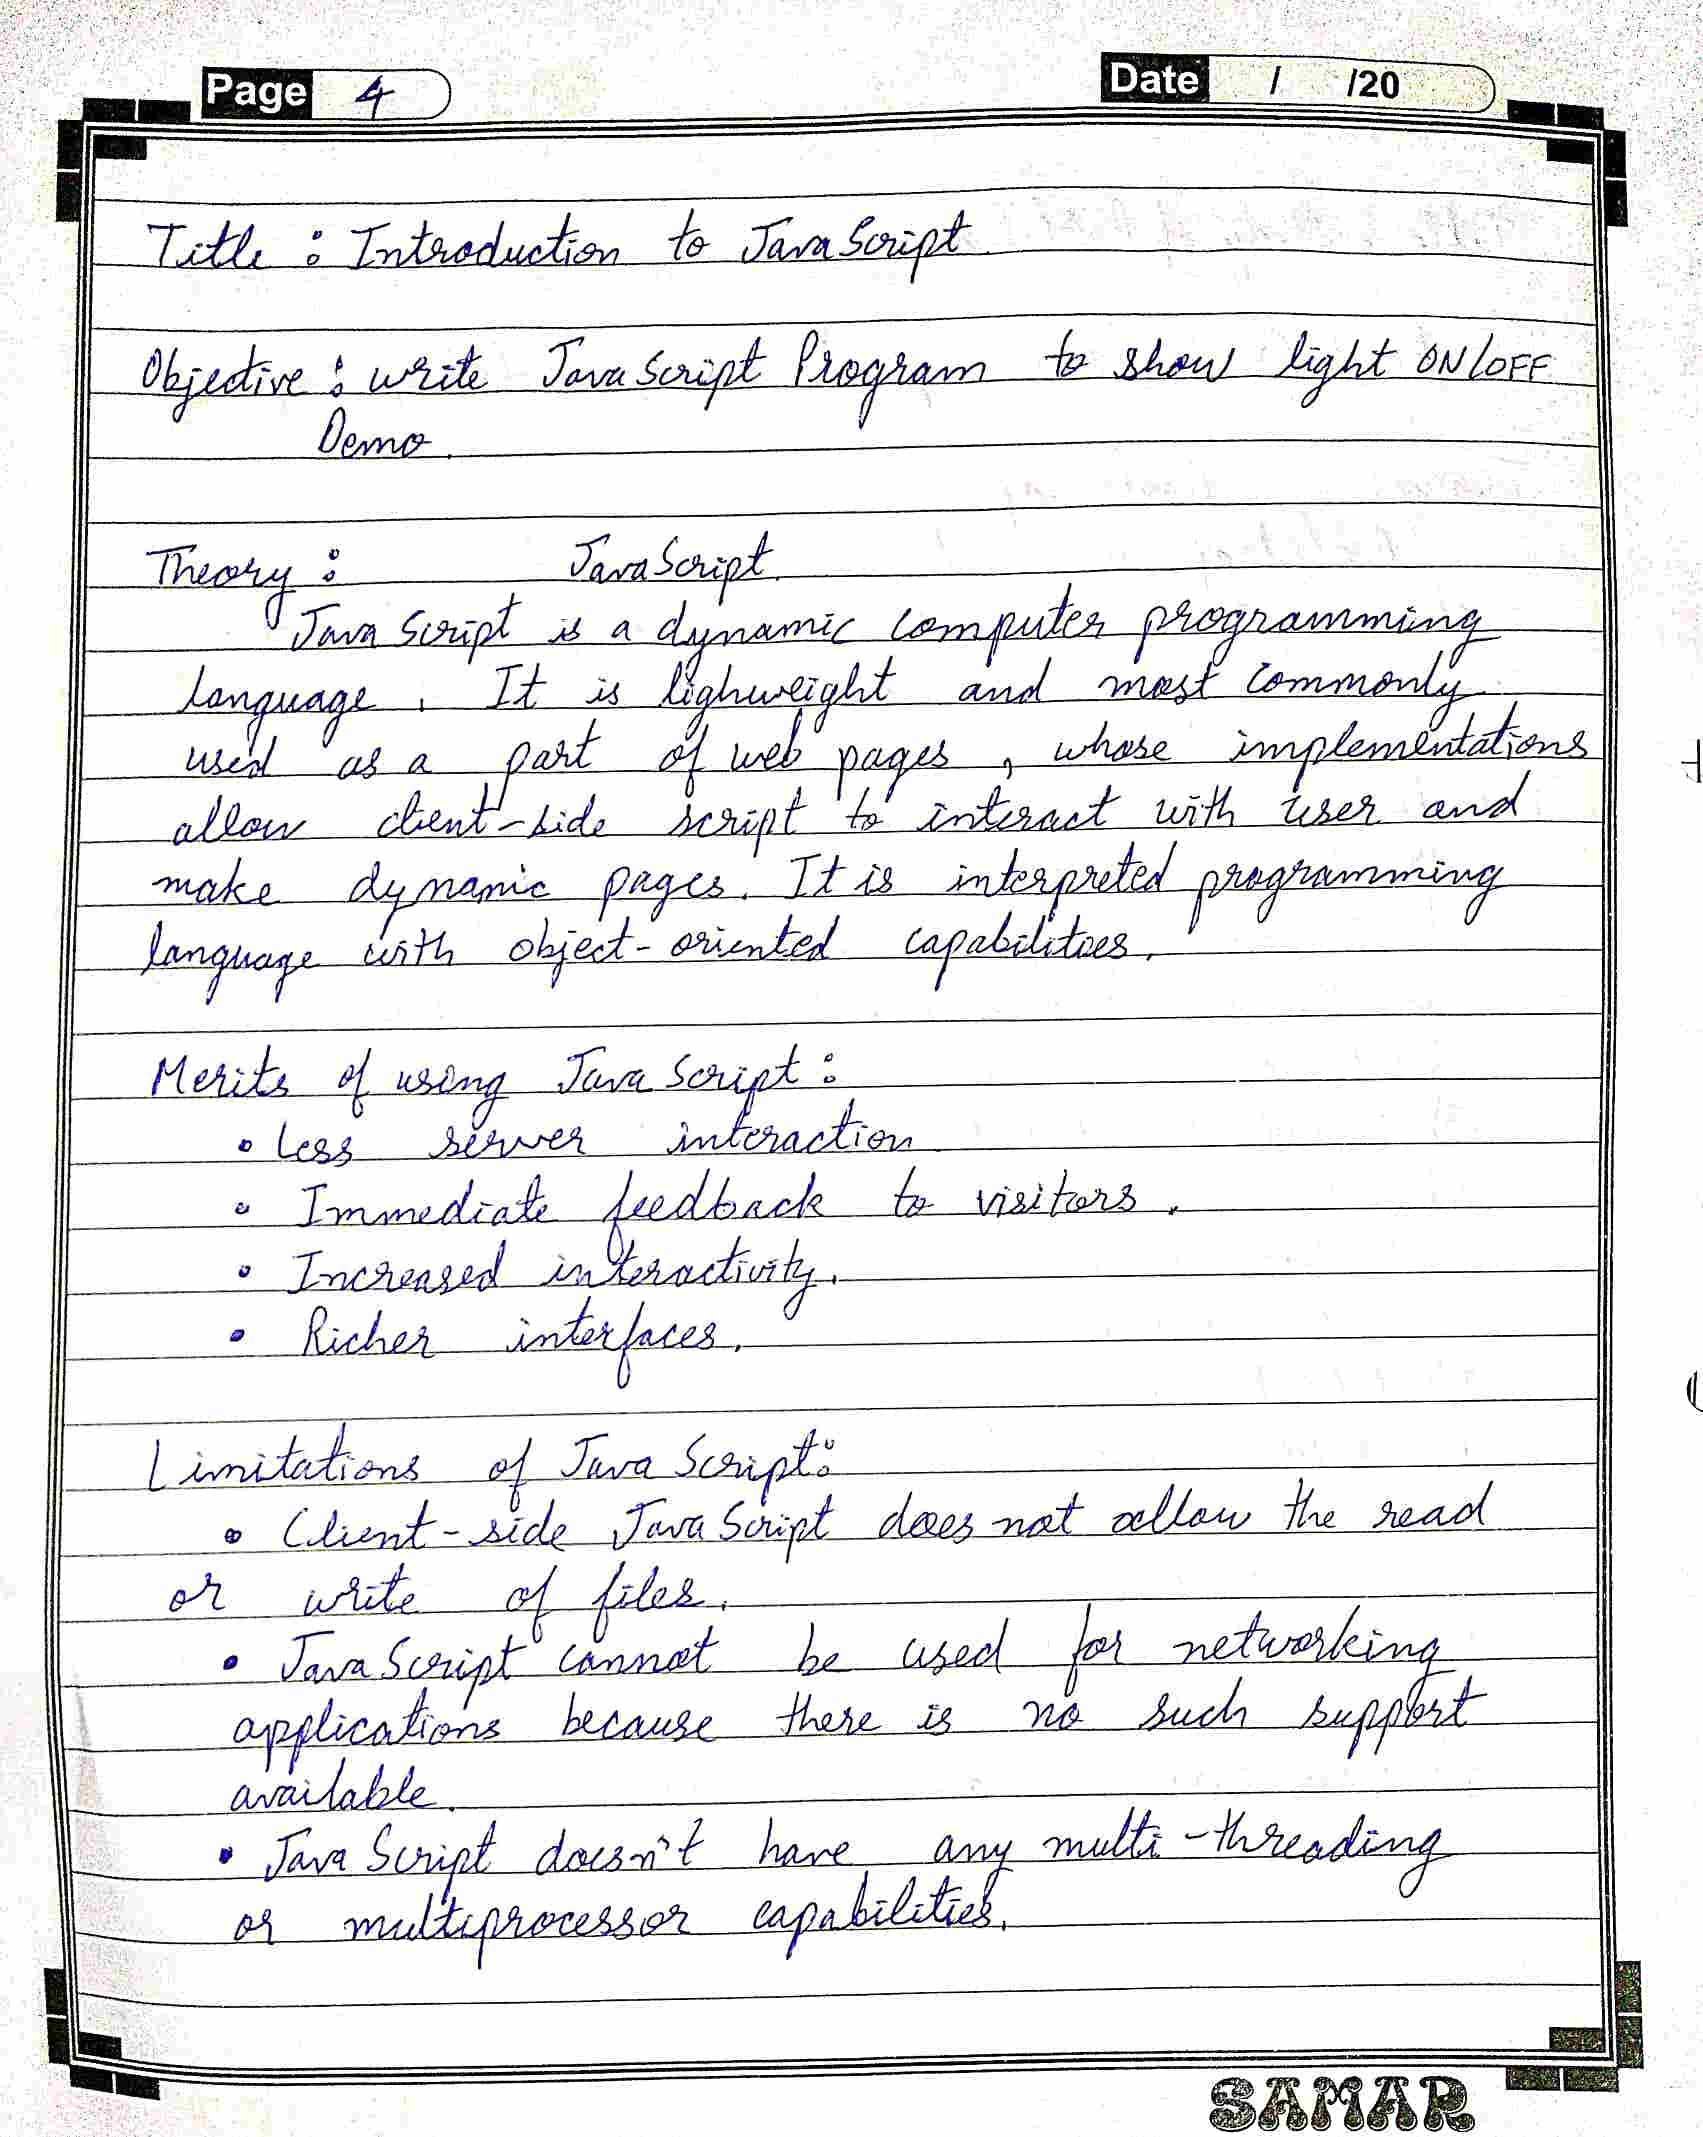 Page 4
Date / /20
Title : Introduction to JavaScript
Objective : write JavaScript Program to show light ON/OFF
Demo.
Theory : JavaScript.
JavaScript is a dynamic computer programming
language. It is lighweight and most commonly
used as a part of web pages, whose implementations
allow client-side script to interact with user and
make dynamic pages. It is interpreted programming
language with object-oriented capabilities.
Merits of using JavaScript :
• Less server interaction
• Immediate feedback to visitors.
• Increased interactivity.
• Richer interfaces.
Limitations of JavaScript:
• Client-side JavaScript does not allow the read
or write of files.
• JavaScript cannot be used for networking
applications because there is no such support
available.
• JavaScript doesn't have any multi-threading
or multiprocessor capabilities.
SAMAR